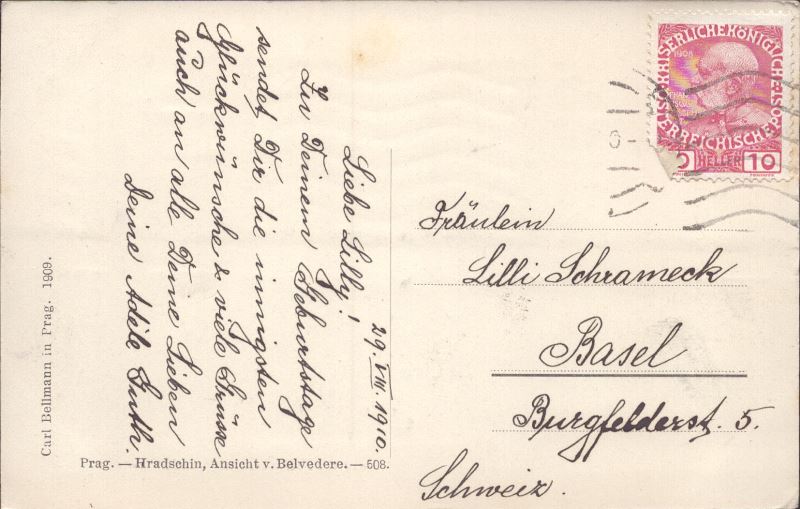 29. VIII. 1910.
Liebe Lilly!
Zu Deinem Geburtstage
sendet Dir die innigsten
Glückwünsche & viele Grüsse
auch an alle Deine Lieben
Deine Adèle Guth.
Carl Bellmann in Prag. 1909.
Prag. — Hradschin, Ansicht v. Belvedere. — 508.
KAISERLICHE KÖNIGLICHE
ÖSTERREICHISCHE POST
1908
HELLER 10
Fräulein
Lilli Schrameck
Basel
Burgfelderst. 5.
Schweiz.